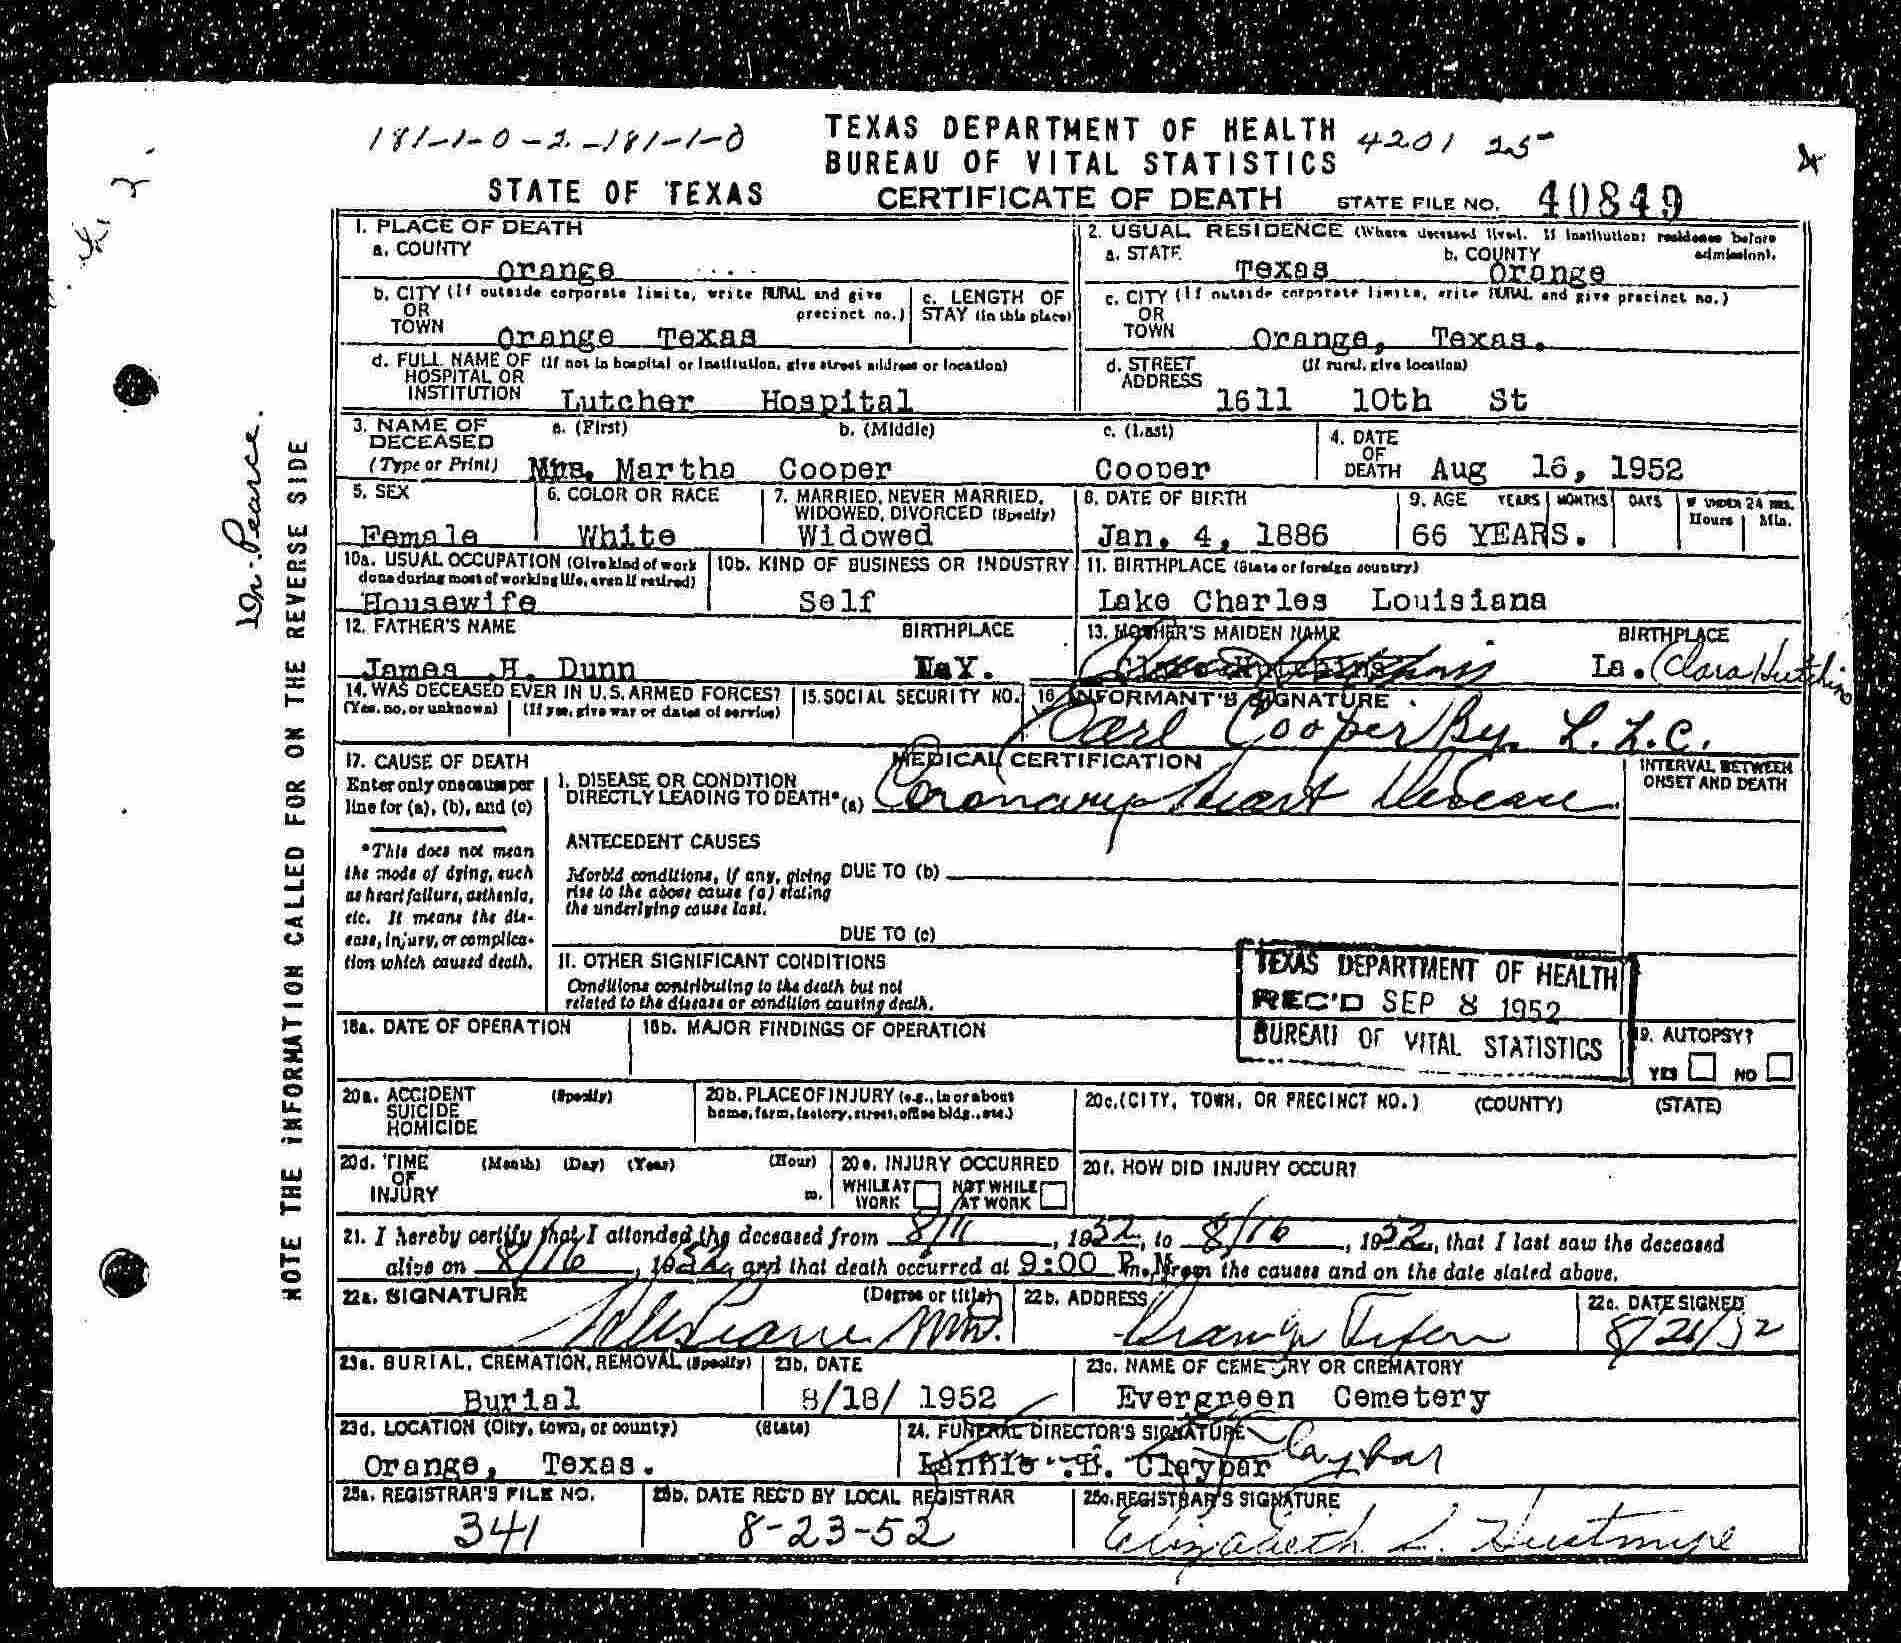 181-1-0-2-181-1-0
TEXAS DEPARTMENT OF HEALTH
4201 25
BUREAU OF VITAL STATISTICS
STATE OF TEXAS
CERTIFICATE OF DEATH
STATE FILE NO. 40849
Dr. Pearce.
NOTE THE INFORMATION CALLED FOR ON THE REVERSE SIDE
1. PLACE OF DEATH
a. COUNTY
Orange
2. USUAL RESIDENCE (Where deceased lived. If institution: residence before admission).
a. STATE Texas
b. COUNTY Orange
b. CITY (If outside corporate limits, write RURAL and give precinct no.)
OR
TOWN
Orange Texas
c. LENGTH OF
STAY (in this place)
c. CITY (If outside corporate limits, write RURAL and give precinct no.)
OR
TOWN
Orange, Texas.
d. FULL NAME OF (If not in hospital or institution, give street address or location)
HOSPITAL OR
INSTITUTION
Lutcher Hospital
d. STREET (If rural, give location)
ADDRESS
1611 10th St
3. NAME OF
DECEASED
(Type or Print)
a. (First)
b. (Middle)
c. (Last)
Mrs. Martha Cooper Cooper
4. DATE
OF
DEATH Aug 16, 1952
5. SEX
Female
6. COLOR OR RACE
White
7. MARRIED, NEVER MARRIED,
WIDOWED, DIVORCED (Specify)
Widowed
8. DATE OF BIRTH
Jan. 4, 1886
9. AGE YEARS MONTHS DAYS IF UNDER 24 HRS.
Hours Min.
66 YEARS.
10a. USUAL OCCUPATION (Give kind of work
done during most of working life, even if retired)
Housewife
10b. KIND OF BUSINESS OR INDUSTRY
Self
11. BIRTHPLACE (State or foreign country)
Lake Charles Louisiana
12. FATHER'S NAME BIRTHPLACE
James H. Dunn
13. MOTHER'S MAIDEN NAME BIRTHPLACE
La. Clara Hutchins
14. WAS DECEASED EVER IN U.S. ARMED FORCES?
(Yes, no, or unknown) (If yes, give war or dates of service)
15. SOCIAL SECURITY NO.
16. INFORMANT'S SIGNATURE
Carl Cooper By. L. L. C.
17. CAUSE OF DEATH
Enter only one cause per
line for (a), (b), and (c)
*This does not mean
the mode of dying, such
as heart failure, asthenia,
etc. It means the dis-
ease, injury, or complica-
tion which caused death.
MEDICAL CERTIFICATION
INTERVAL BETWEEN
ONSET AND DEATH
I. DISEASE OR CONDITION
DIRECTLY LEADING TO DEATH* (a) Coronary Heart Disease
ANTECEDENT CAUSES
Morbid conditions, if any, giving
rise to the above cause (a) stating
the underlying cause last.
DUE TO (b)
DUE TO (c)
II. OTHER SIGNIFICANT CONDITIONS
Conditions contributing to the death but not
related to the disease or condition causing death.
TEXAS DEPARTMENT OF HEALTH
REC'D SEP 8 1952
BUREAU OF VITAL STATISTICS
18a. DATE OF OPERATION
18b. MAJOR FINDINGS OF OPERATION
19. AUTOPSY?
YES NO
20a. ACCIDENT (Specify)
SUICIDE
HOMICIDE
20b. PLACE OF INJURY (e.g., in or about
home, farm, factory, street, office bldg., etc.)
20c. (CITY, TOWN, OR PRECINCT NO.) (COUNTY) (STATE)
20d. TIME (Month) (Day) (Year) (Hour)
OF
INJURY m.
20e. INJURY OCCURRED
WHILE AT
WORK
NOT WHILE
AT WORK
20f. HOW DID INJURY OCCUR?
21. I hereby certify that I attended the deceased from 8/11, 1952, to 8/16, 1952, that I last saw the deceased
alive on 8/16, 1952, and that death occurred at 9:00 P.m., from the causes and on the date stated above.
22a. SIGNATURE (Degree or title)
Pearce MD.
22b. ADDRESS
Orange Texas
22c. DATE SIGNED
8/21/52
23a. BURIAL, CREMATION, REMOVAL (Specify)
Burial
23b. DATE
8/18/ 1952
23c. NAME OF CEMETERY OR CREMATORY
Evergreen Cemetery
23d. LOCATION (City, town, or county) (State)
Orange, Texas.
24. FUNERAL DIRECTOR'S SIGNATURE
Claybar
25a. REGISTRAR'S FILE NO.
341
25b. DATE REC'D BY LOCAL REGISTRAR
8-23-52
25c. REGISTRAR'S SIGNATURE
Elizabeth L. Hustmyre